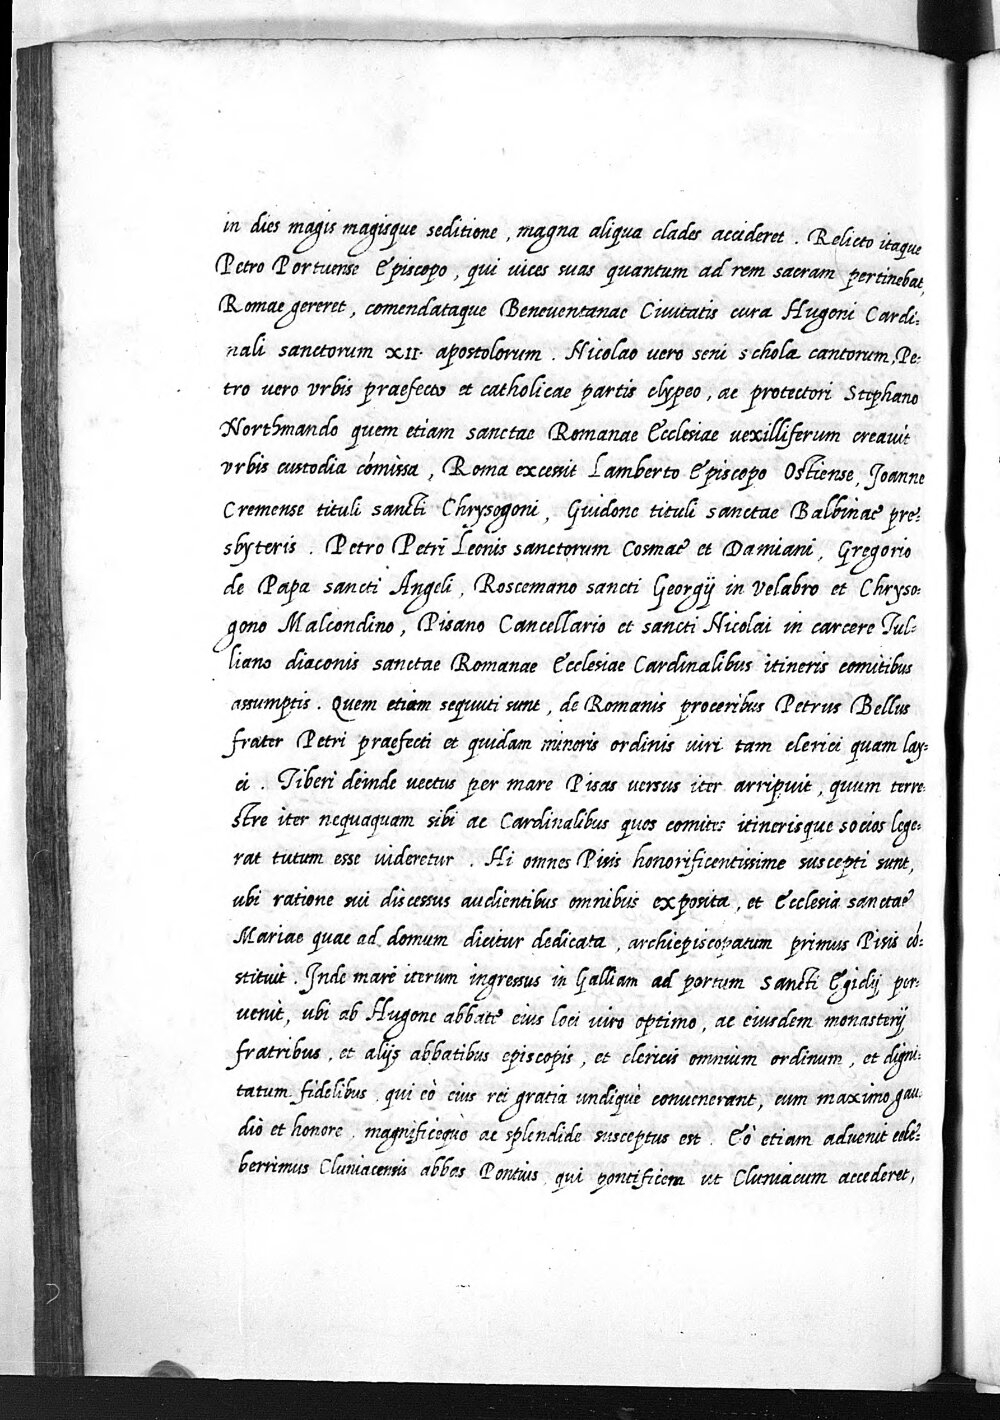 in dies magis magisque seditione, magna aliqua clades accideret. Relicto itaque
Petro Portuense Episcopo, qui uices suas quantum ad rem sacram pertinebat,
Romae gereret, comendataque Beneuentanae Ciuitatis cura Hugoni Cardi-
nali sanctorum XII· apostolorum. Nicolao uero seni schola cantorum, Pe-
tro uero vrbis praefecto et catholicae partis clypeo, ac protectori Stephano
Northmando quem etiam sanctae Romanae Ecclesiae uexilliferum creauit
vrbis custodia cómissa, Roma excessit Lamberto Episcopo Ostiense, Joanne
Cremense tituli sancti Chrysogoni, Guidone tituli sanctae Balbinae pre-
sbyteris. Petro Petri Leonis sanctorum Cosmae et Damiani, Gregorio
de Papa sancti Angeli, Roscemano sancti Georgij in Velabro et Chryso-
gono Malcondino, Pisano Cancellario et sancti Nicolai in carcere Jul-
liano diaconis sanctae Romanae Ecclesiae Cardinalibus itineris comitibus
assumptis. Quem etiam sequuti sunt, de Romanis proceribus Petrus Bellus
frater Petri praefecti et quidam minoris ordinis uiri tam clerici quam lay-
ci. Tiberi deinde uectus per mare Pisas versus iter arripuit, quum terre-
stre iter nequaquam sibi ac Cardinalibus quos comites itinerisque socios lege-
rat tutum esse uideretur. Hi omnes Pisis honorificentissime suscepti sunt,
ubi ratione sui discessus audientibus omnibus exposita, et Ecclesia sanctae
Mariae quae ad domum dicitur dedicata, archiepiscopatum primus Pisis có-
stituit. Inde mare iterum ingressus in Galliam ad portum Sancti Egidij per-
uenit, ubi ab Hugone abbate eius loci uiro optimo, ac eiusdem monasterij
fratribus, et alijs abbatibus episcopis, et clericis omnium ordinum, et digni-
tatum fidelibus, qui eò eius rei gratia undiquè conuenerant, cum maximo gau-
dio et honore, magnificequè ac splendide susceptus est. Eò etiam aduenit cele-
berrimus Cluniacensis abbas Pontius, qui pontificem ut Cluniacum accederet,